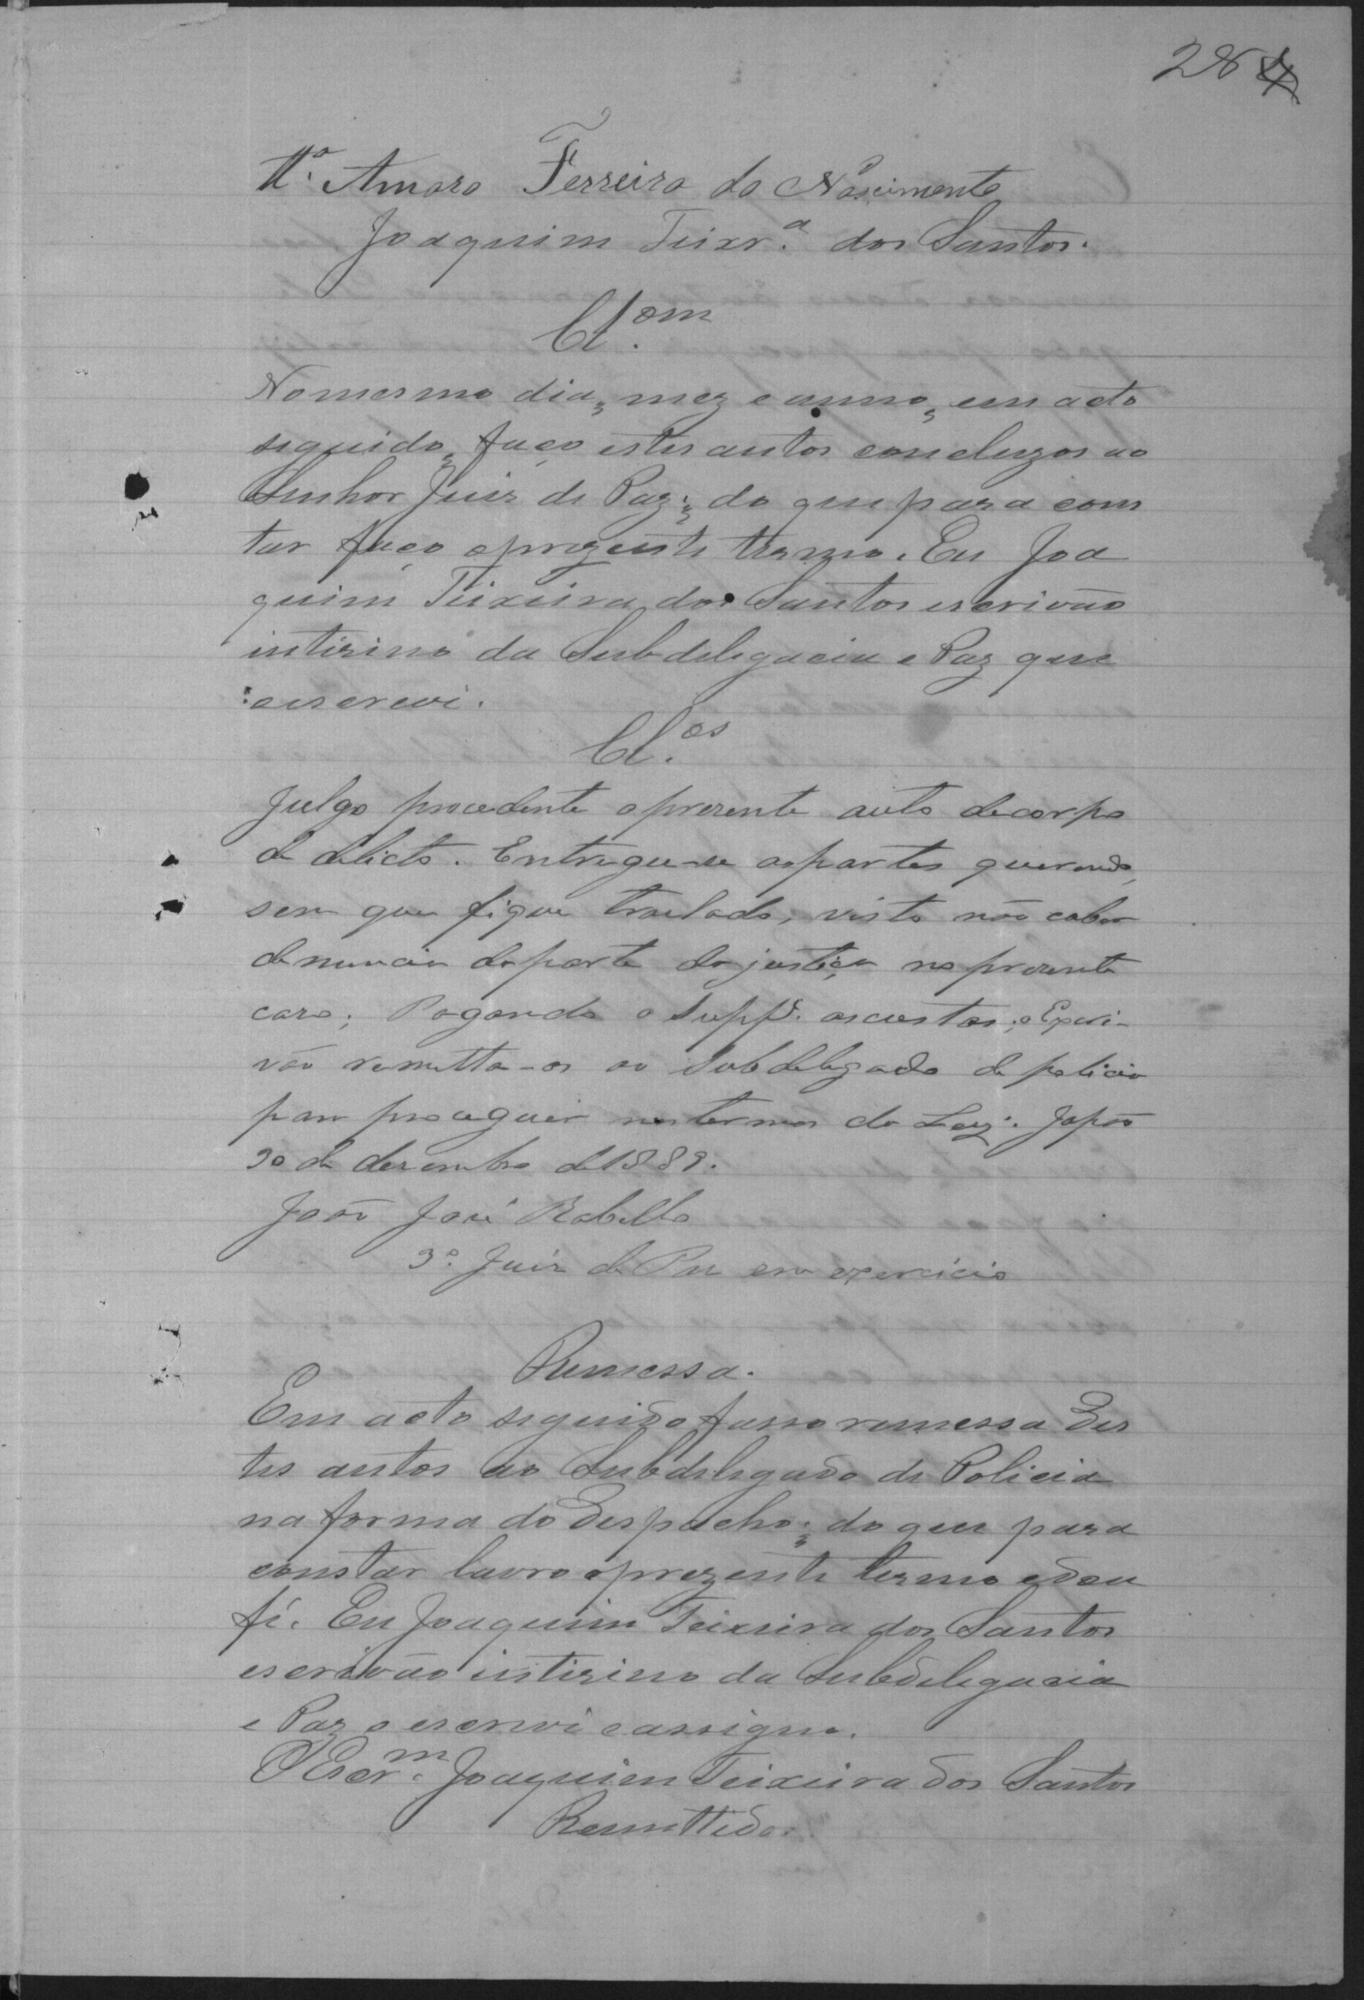 28
Mº. Amaro Ferreira do Nascimento
Joaquim Teixrª. dos Santos.
Cl.om
No mesmo dia, mez e anno, em acto
siguido, faço estes autos concluzos ao
Senhor Juiz de Paz; do que para cons
tar faço o prezente termo. Eu Joa
quim Teixeira dos Santos escrivão
intirino da Subdelegacia e Paz que
o escrevi.
Cl.os
Julgo procedente o presente auto de corpo
de delicto. Entregue-se as partes querendo,
sem que fique traslado, visto não caber
denuncia da parte da justiça no presente
caso; Pagando o Suppe. as custas; o Escri-
vão remetta-os ao Subdelegado de policia
para proceguir nos termos da Ley. Japão
30 de dezembro de 1889.
João José Rabello
3º. Juiz de Paz em exercicio
Remessa.
Em acto seguido fasso remessa des
tes autos ao Subdelegado de Policia
na forma do despacho; do que para
constar lavro o prezente termo e dou
fé. Eu Joaquim Teixeira dos Santos
escrivão intirino da Subdelegacia
e Paz o escrevi e assigno.
O Escr.m Joaquim Teixeira dos Santos
Remettido.